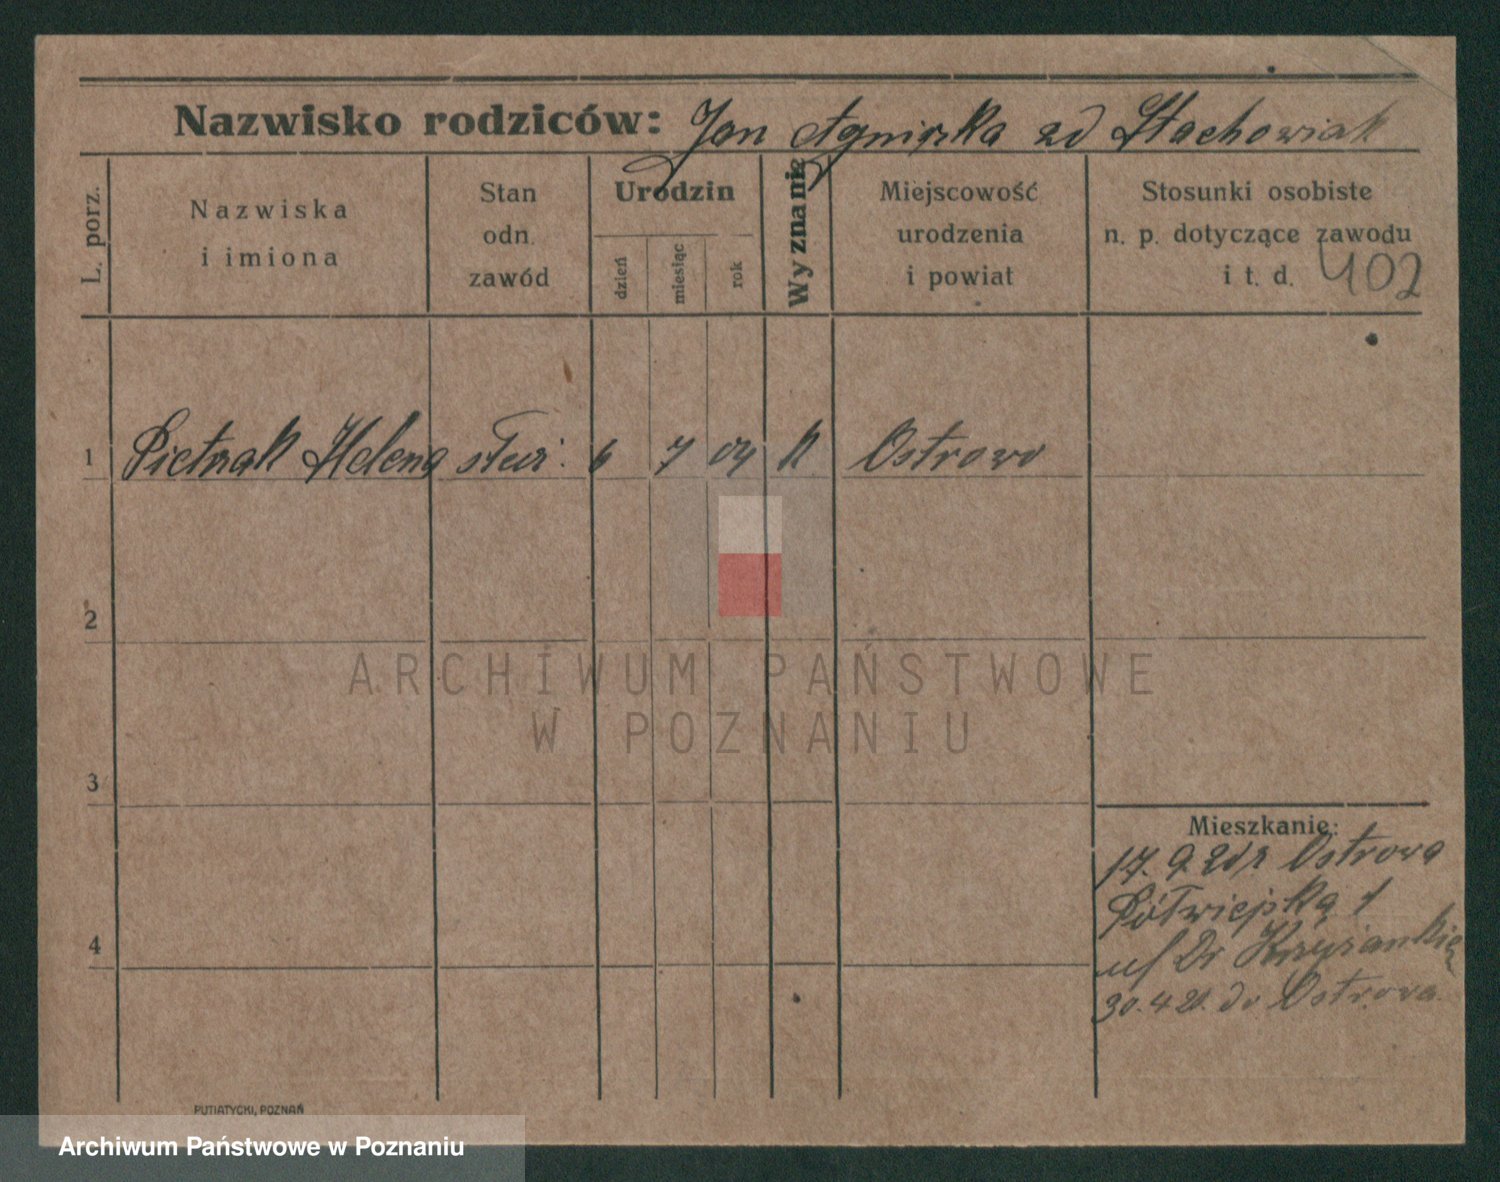 Nazwisko rodziców: Jan Agnieszka zd Stachowiak
L. porz.
Nazwiska
i imiona
Stan
odn.
zawód
Urodzin
dzień
miesiąc
rok
Wyznanie
Miejscowość
urodzenia
i powiat
Stosunki osobiste
n. p. dotyczące zawodu
i t. d.
402
1 Pietrzak Helena służ. 6 7 04 k Ostrowo
2
3
4
Mieszkanie:
17. 9. z Ostrowa
Półwiejska 1
u/ Dr
30. 4 21. do Ostrowa
ARCHIWUM PAŃSTWOWE
W POZNANIU
PUTIATYCKI, POZNAŃ
Archiwum Państwowe w Poznaniu